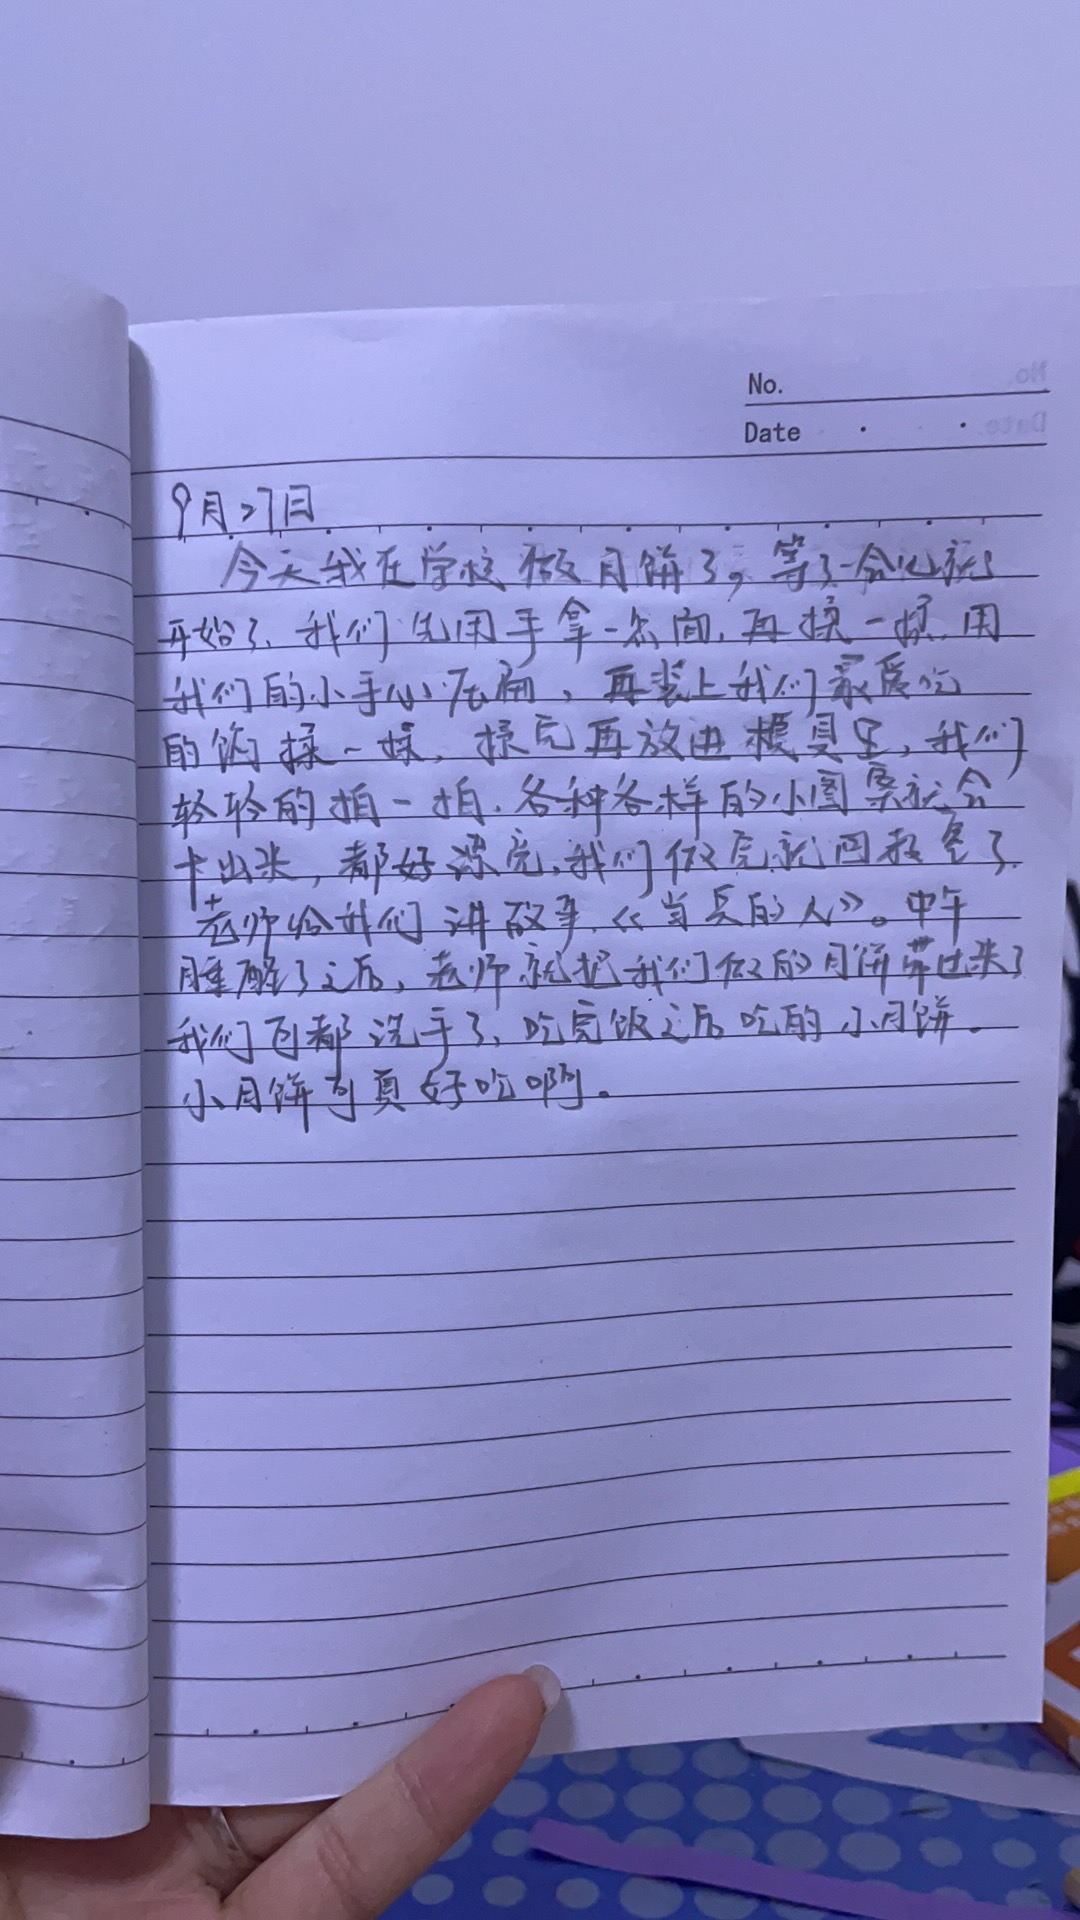 No.
Date
9月27日
今天我在学校做月饼了,等了一会儿就
开始了、我们先用手拿一点面,再揉一揉,用
我们的小手心压扁,再装上我们最爱吃
的馅揉一揉,揉完再放进模具里,我们
轻轻的拍一拍.各种各样的小图案就会
卡出来,都好漂亮,我们做完就回教室了.
老师给我们讲故事《当兵的人》。中午
睡醒了之后,老师就把我们做的月饼带过来了
我们都洗手了、吃完饭之后吃的小月饼.
小月饼可真好吃啊。